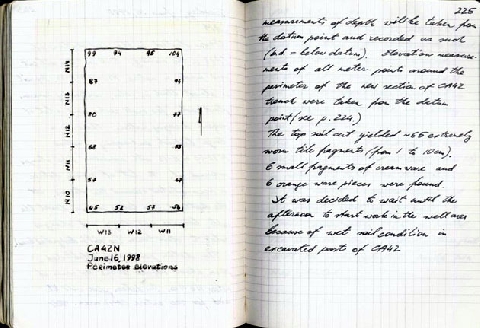 99 94 95 104
N14
87
N13
N12
N11
N10
65 52 57
W13 W12 W11
CA42N
June 16, 1998
Perimeter elevations
225
measurements of depth will be taken from
the datum point and recorded as such
(bd - below datum). Elevation measure-
ments of all meter points around the
perimeter of the new section of CA42
trench were taken from the datum
point (see p. 224.)
The top soil cut yielded ~55 extremely
worn tile fragments (from 1 to 10cm).
6 small fragments of cream ware and
6 orange ware pieces were found.
It was decided to wait until the
afternoon to start work in the well area
because of wet soil condition in
excavated parts of CA42